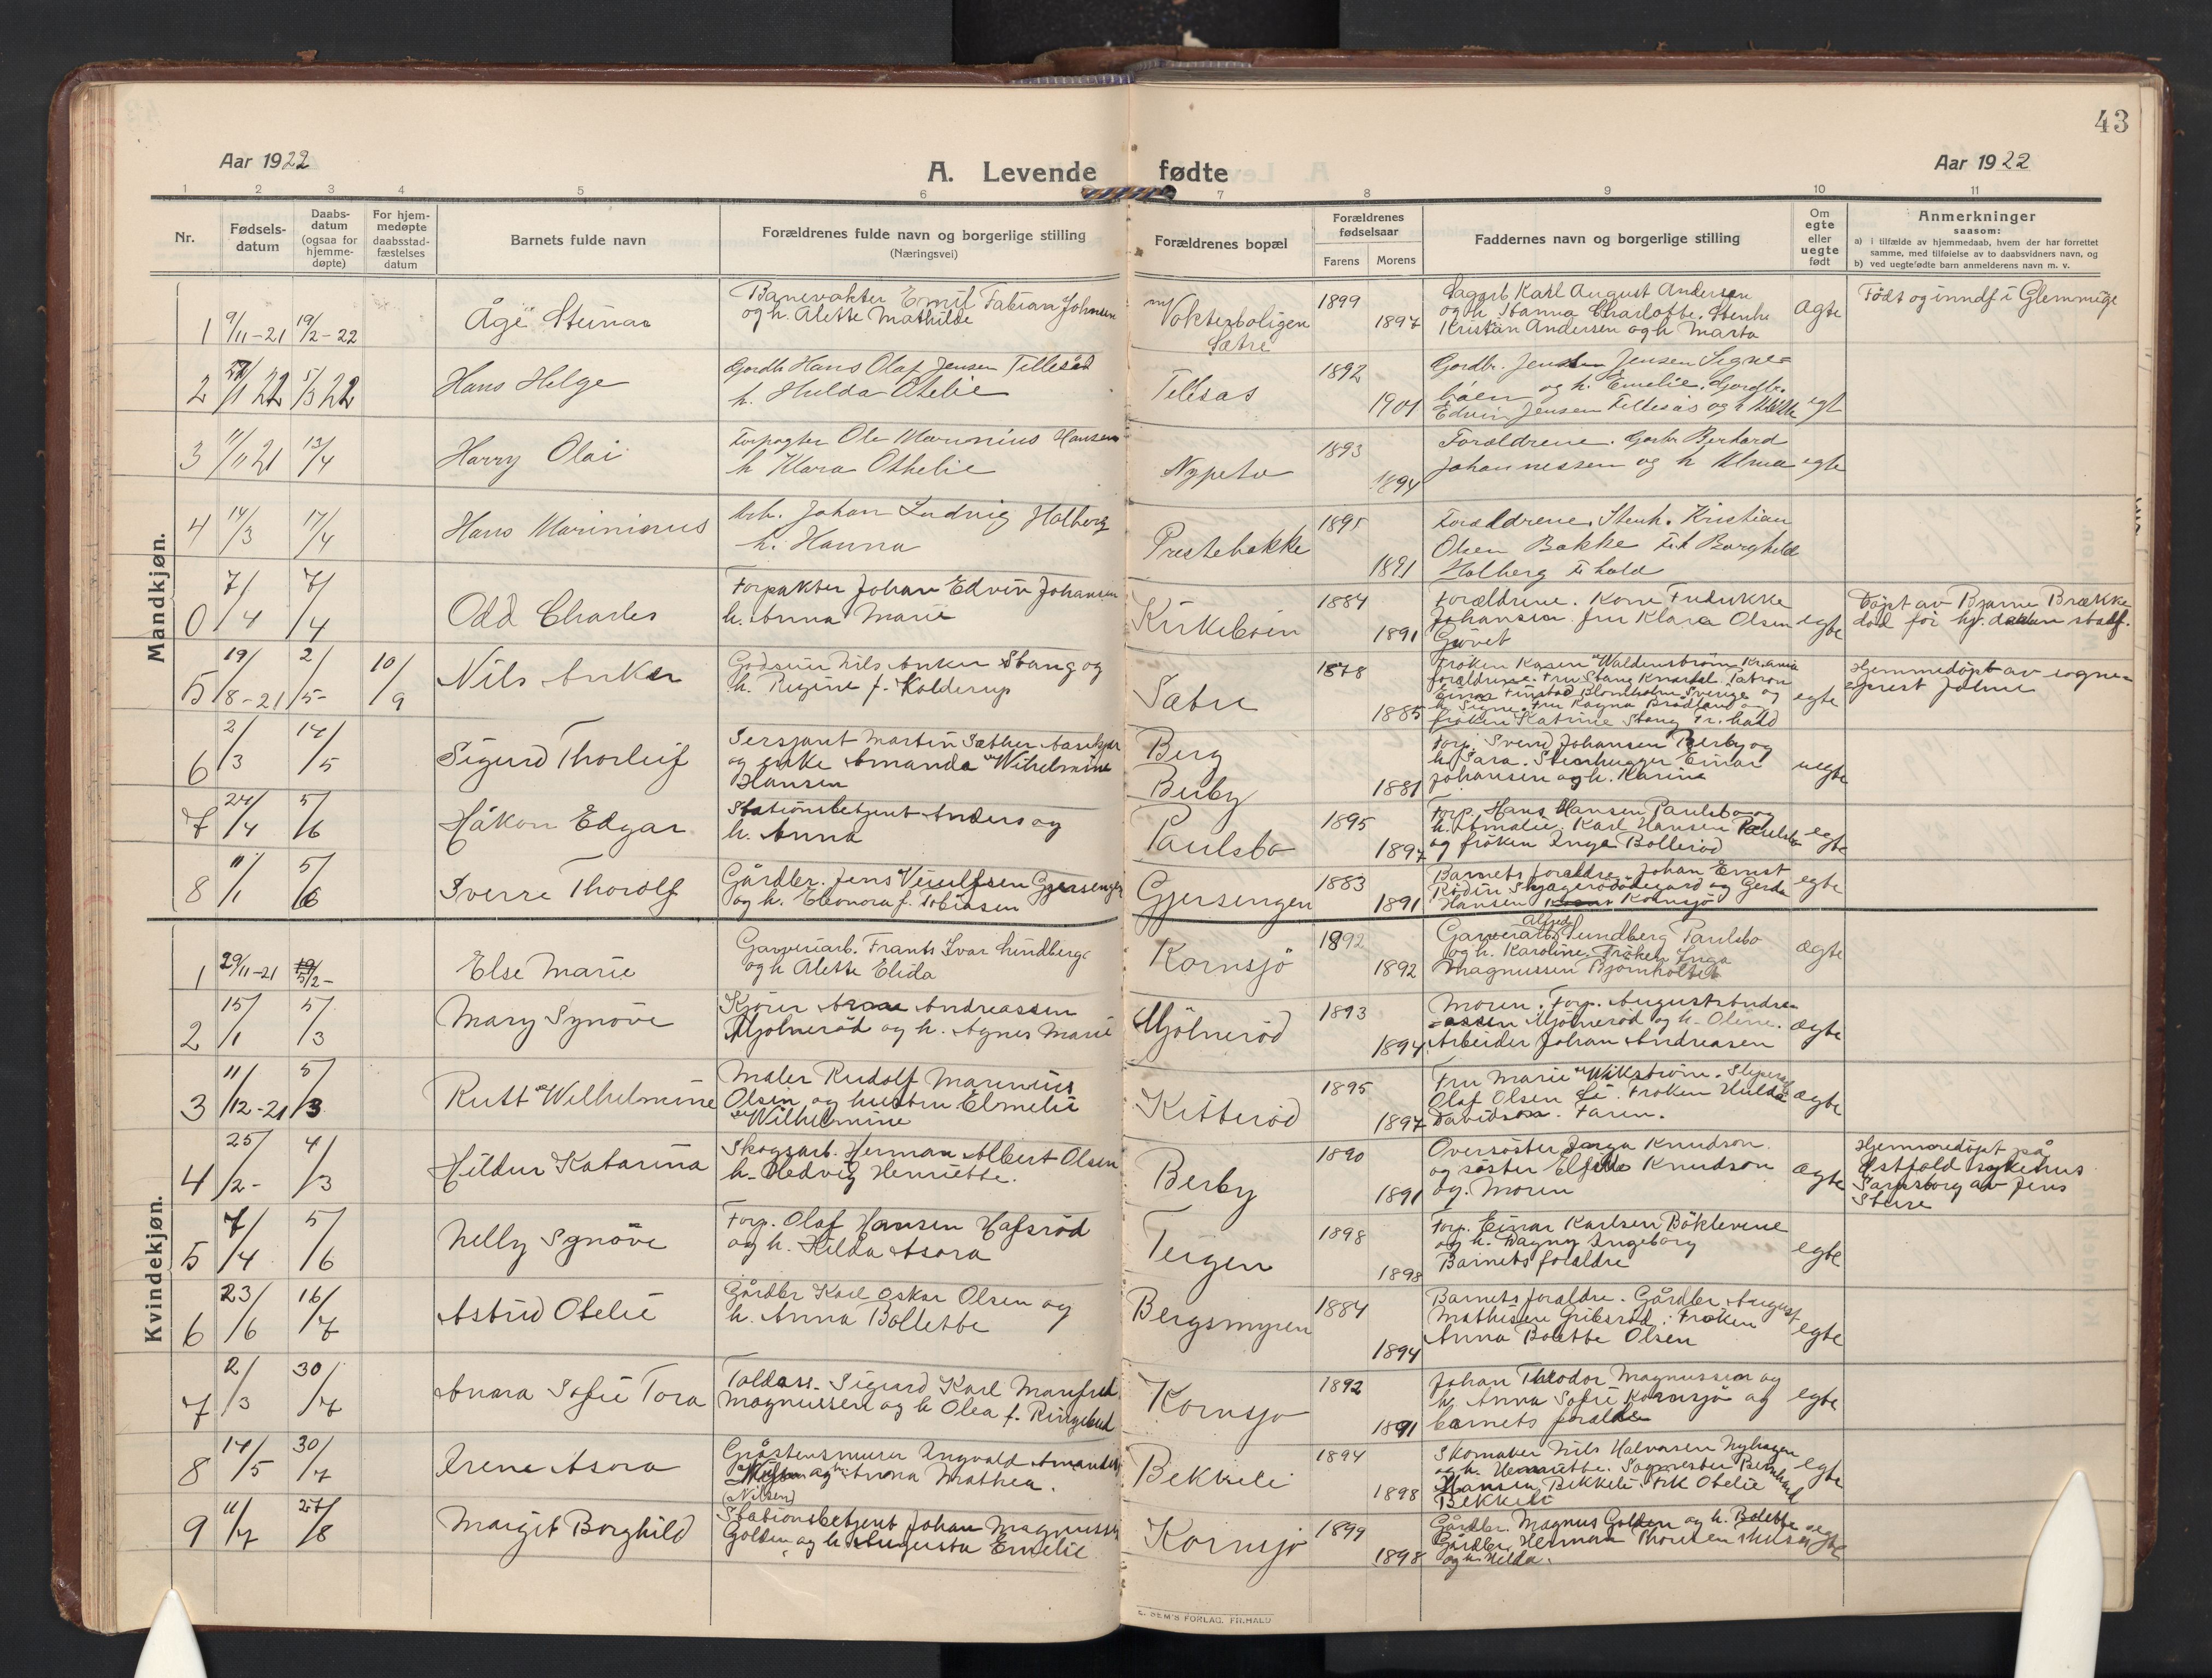 43
Aar 1922
A. Levende fødte
Aar 1922
1 2 3 4 5 6 7 8 9 10 11
Nr.
Fødsels-
datum
Daabs-
datum
(ogsaa for
hjemme-
døpte)
For hjem-
medøpte
daabsstad-
fæstelses
datum
Barnets fulde navn
Forældrenes fulde navn og borgerlige stilling
(Næringsvei)
Forældrenes bopæl
Forældrenes
fødselsaar
Farens Morens
Faddernes navn og borgerlige stilling
Om
egte
eller
uegte
født
Anmerkninger
saasom:
a) i tilfælde av hjemmedaab, hvem der har forrettet
samme, med tilføielse av to daabsvidners navn, og
b) ved uegtefødte barn anmelderens navn m. v.
Mandkjøn.
1 9/11-21 19/2-22 Åge Steinar
Banevokter Emil Fabian Johnsen
og h. Alette Mathilde
Vokterboligen
Sætre
1899 1897
Karl August Andersen
og h Hanna Charlotte. Stenh
Kristian Andersen og h Marta
ægte
Født og inndf i Glemmige
2 22 5/3 22 Hans Helge
Gordb Hans Olaf Jensen Tillesås
h. Hulda Otelie
Tillesås
1892 1901
Gordbr. Jensen Signe=
båen og h. Emelie. Gordbr.
Edvin Jensen Tillesås og h
egt
3 11/11 21 13/4 Harry Olai
Forpagter Ole Marinius Hansen
h Klara Othelie
Nypeto
1893 1894
Forældrene. Gårbr Berhard
Johannessen og h Alma
egte
4 14/3 17/4 Hans Marinius
Arb. Johan Ludvig Holberg
h. Hanna
Prestebakke
1891 1891
Forældrene. Stenh. Kristian
Olsen Bakke Frk Borghild
Holberg F. hald
0 7/4 7/4 Odd Charles
Forpakter Johan Edvin Johansen
h. Anna Marie
Kirkebøen
1884 1891
Forældrene. Kone Fredrikke
Johansen. fru Klara Olsen
egte
Døpt av Bjarne Brække
død før hj. dåben stadf.
5 19/8-21 2/5- 10/9 Nils Anker
Godseier Nils Anker Stang og
h. Regine f. Kolderup
Sætre
1878 1885
Frøken Karen Waldenstrøm Kr.ania
forældrene. Fru Stang Patron
Einar Finstad Blomholm Sverige og
h. Signe. Fru Ragna Brødland og
frøken Katrine Stang Fr. hald
egte
Hjemmedøpt av sogne=
prest Johne
6 2/3 14/5 Sigurd Thorleif
Sersjant Martin Sæther
og enke Amanda Wilhelmine
Hansen
Berg
Berby
1881
Forp. Svend Johansen Berby og
h. Sara. Stenhugger Einar
Johansen og h. Karine
uegte
7 24/4 5/6 Håkon Edgar
Stationsbetjent Anders og
h. Anna
Paulsbo
1895 1897
Forp. Hans Hansen Paulsbo og
h. Amalie. Karl Hansen Paulsbo
og frøken Inga Bollerød
egte
8 11/1 5/6 Sverre Thorolf
Gårdbr. Jens Gjersengen
og h. Eleonora f. Tobiasen
Gjersengen
1883 1891
Barnets forældre. Johan Ernst
Rødin og Gerda
Hansen Kornsjø
egte
Kvindekjøn.
1 29/11-21 Else Marie
Garveriarb. Frants Ivar Lundberg
og h Alette Elida
Kornsjø
1892 1892
Alfred
Lundberg Paulsbo
og h. Karoline. Frøken Inga
Magnussen Bjørnholtet
ægte
2 15/1 5/3 Mary Synøve
Kjører Arne Andreassen
Mjølnerød og h. Agnes Marie
Mjølnerød
1893 1894
Moren. Forp. August Andre-
=assen Mjølnerød og h. Oline.
Arbeider Johan Andreasen
ægte
3 11/12-21 5/3 Rutt Wilhelmine
Maler Rudolf Marinius
Olsen og hustru Elmelie
Wilhelmine
Kitterød
1895 1897
Fru Marie Wikstrøm.
Olaf Olsen Li. Frøken Hulda
Davidson. Faren.
ægte
4 25/2- 4/3 Hildur Katarina
Skogsarb. Herman Albert Olsen
h. Hedvig Henriette.
Berby
1890 1891
Oversøster Inga Knudson
og søster Knudson
og. Moren
ægte
Hjemmedøpt på
Østfold sykehus
Sarpsborg av Jens
5 7/4 5/6 Nelly Synøve
Forp. Olaf Hansen Hafsrød
og h. Hilda Asora
Teigen
1898 1898
Forp. Einar Karlsen Bøklevene
og h. Dagny Ingeborg
Barnets forældre
egte
6 23/6 16/7 Astrid Otelie
Gårdbr Karl Oskar Olsen og
h. Anna Bollette
Bergsmyren
1884 1894
Barnets forældre. Gårdbr. August
Mathisen Gribsrød. Frøken
Anna Bolette Olsen
egte
7 2/3 30/7 Anna Sofie Tora
Toldass. Sigurd Karl Manfred
Magnussen og h Olea f. Ringstad
Kornsjø
1892 1891
Johan Theodor Magnussen og
h. Anna Sofie Kornsjø og
barnets forældre
egte
8 14/5 30/7 Irene Asora
Gråstensmurer Ingvald Amandus
og Anna Mathea.
(Nilsen)
Bekkeli
1894 1898
Skomaker Nils Halvorsen Nyhagen
og h. Henriette. Bernhard
Hansen Bekkeli. Frk Otelie
Bekkeli
egte
9 11/7 27/8 Margit Borghild
Stationsbetjent Johan Magnussen
Golden og h. Augusta Emelie
Kornsjø
1899 1898
Gårdbr. Magnus Golden og h. Bolette
Gårdbr. Herman
og h. Hilda.
egte
E. SEM'S FORLAG, FR.HALD